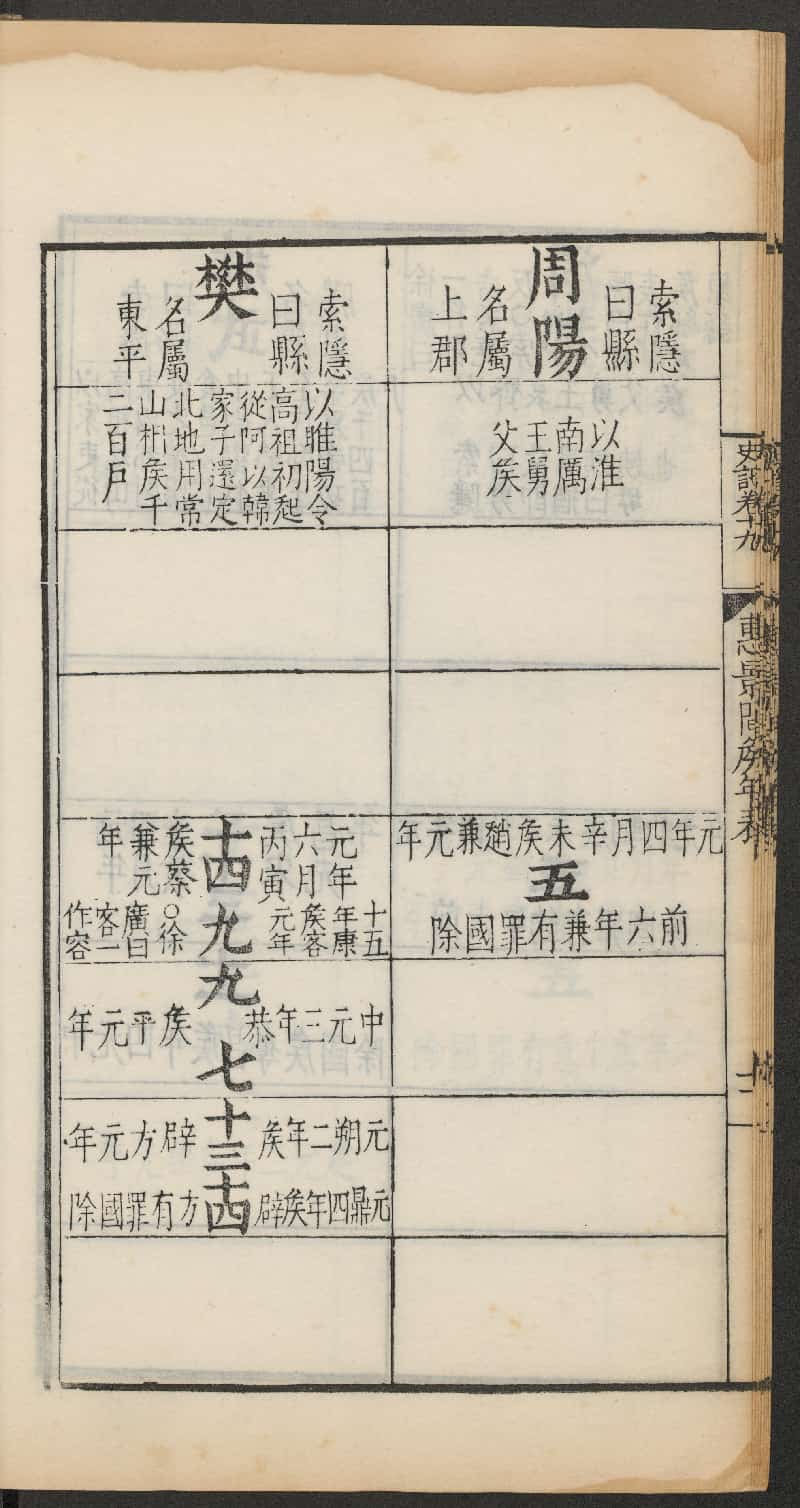 史記卷十九
惠景間矦年表
十二
周陽
索隱
曰縣
名屬
上郡
以淮
南厲
王舅
父矦
元年四月辛未矦趙兼元年
五
前六年兼有罪國除
樊
索隱
曰縣
名屬
東平
以睢陽令
高祖初起
從阿以韓
家子還定
北地用常
山相矦千
二百戶
十四
元年
六月
丙寅
矦蔡
兼元
年
九
十五
年康
矦客
元年
○徐
廣曰
客一
作容
九
中元三年恭矦平元年
七
十三
元朔二年矦辟方元年
十四
元鼎四年矦辟方有罪國除